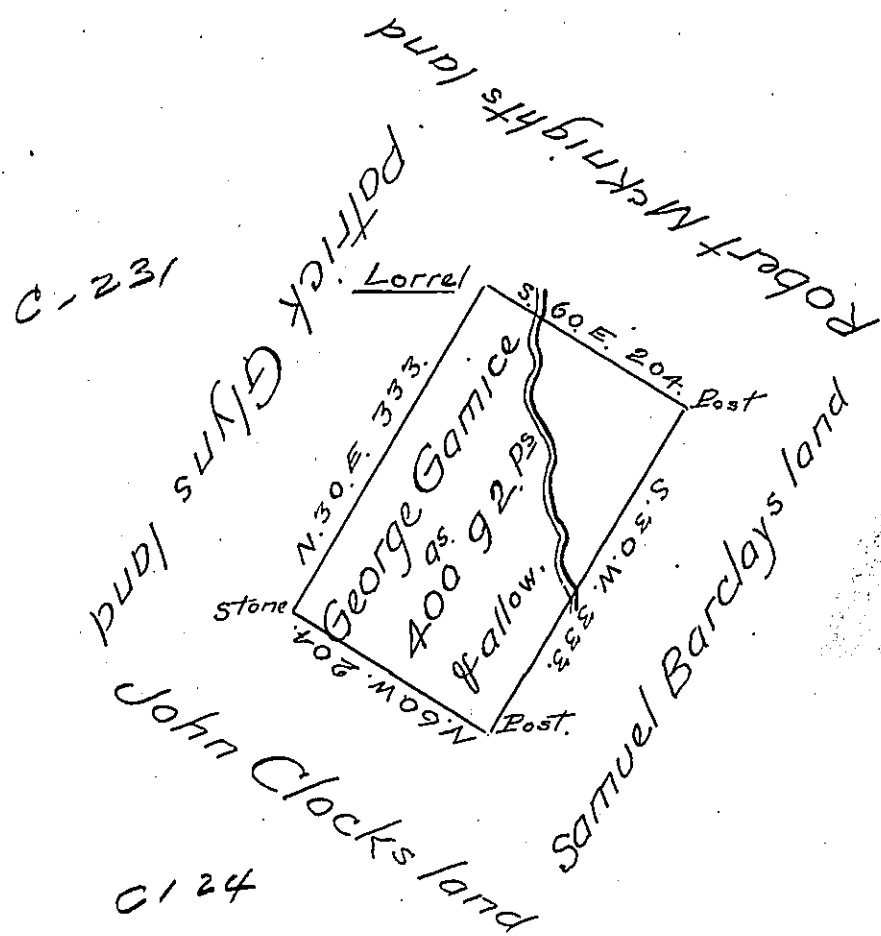 Robert McKnights land
Patrick Glyns land
C-231
Lorrel
S. 60. E. 204.
Post
N. 30. E. 333.
George Gamice
as.
400 92. Ps
& allow.
S. 30. W. 333.
Stone
N. 60. W. 204.
Post.
Samuel Barclays land
John Clocks land
C124